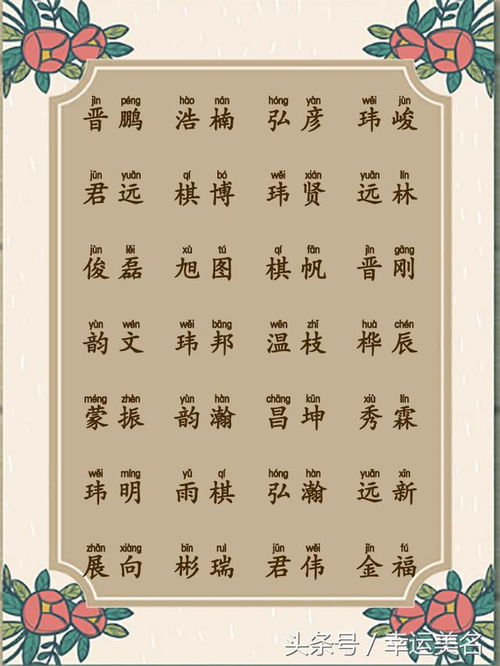 jìn péng hào nán hóng yàn wěi jùn
晋鹏 浩楠 弘彦 玮峻
jūn yuǎn qí bó wěi xián yuǎn lín
君远 棋博 玮贤 远林
jùn lěi xù tú qí fān jìn gāng
俊磊 旭图 棋帆 晋刚
yùn wén wěi bāng wēn zhī huà chén
韵文 玮邦 温枝 桦辰
méng zhèn yùn hàn chāng kūn xiù lín
蒙振 韵瀚 昌坤 秀霖
wěi míng yǔ qí hóng hàn yuǎn xīn
玮明 雨棋 弘瀚 远新
zhǎn xiàng bīn ruì jūn wěi jīn fú
展向 彬瑞 君伟 金福
头条号/幸运美名